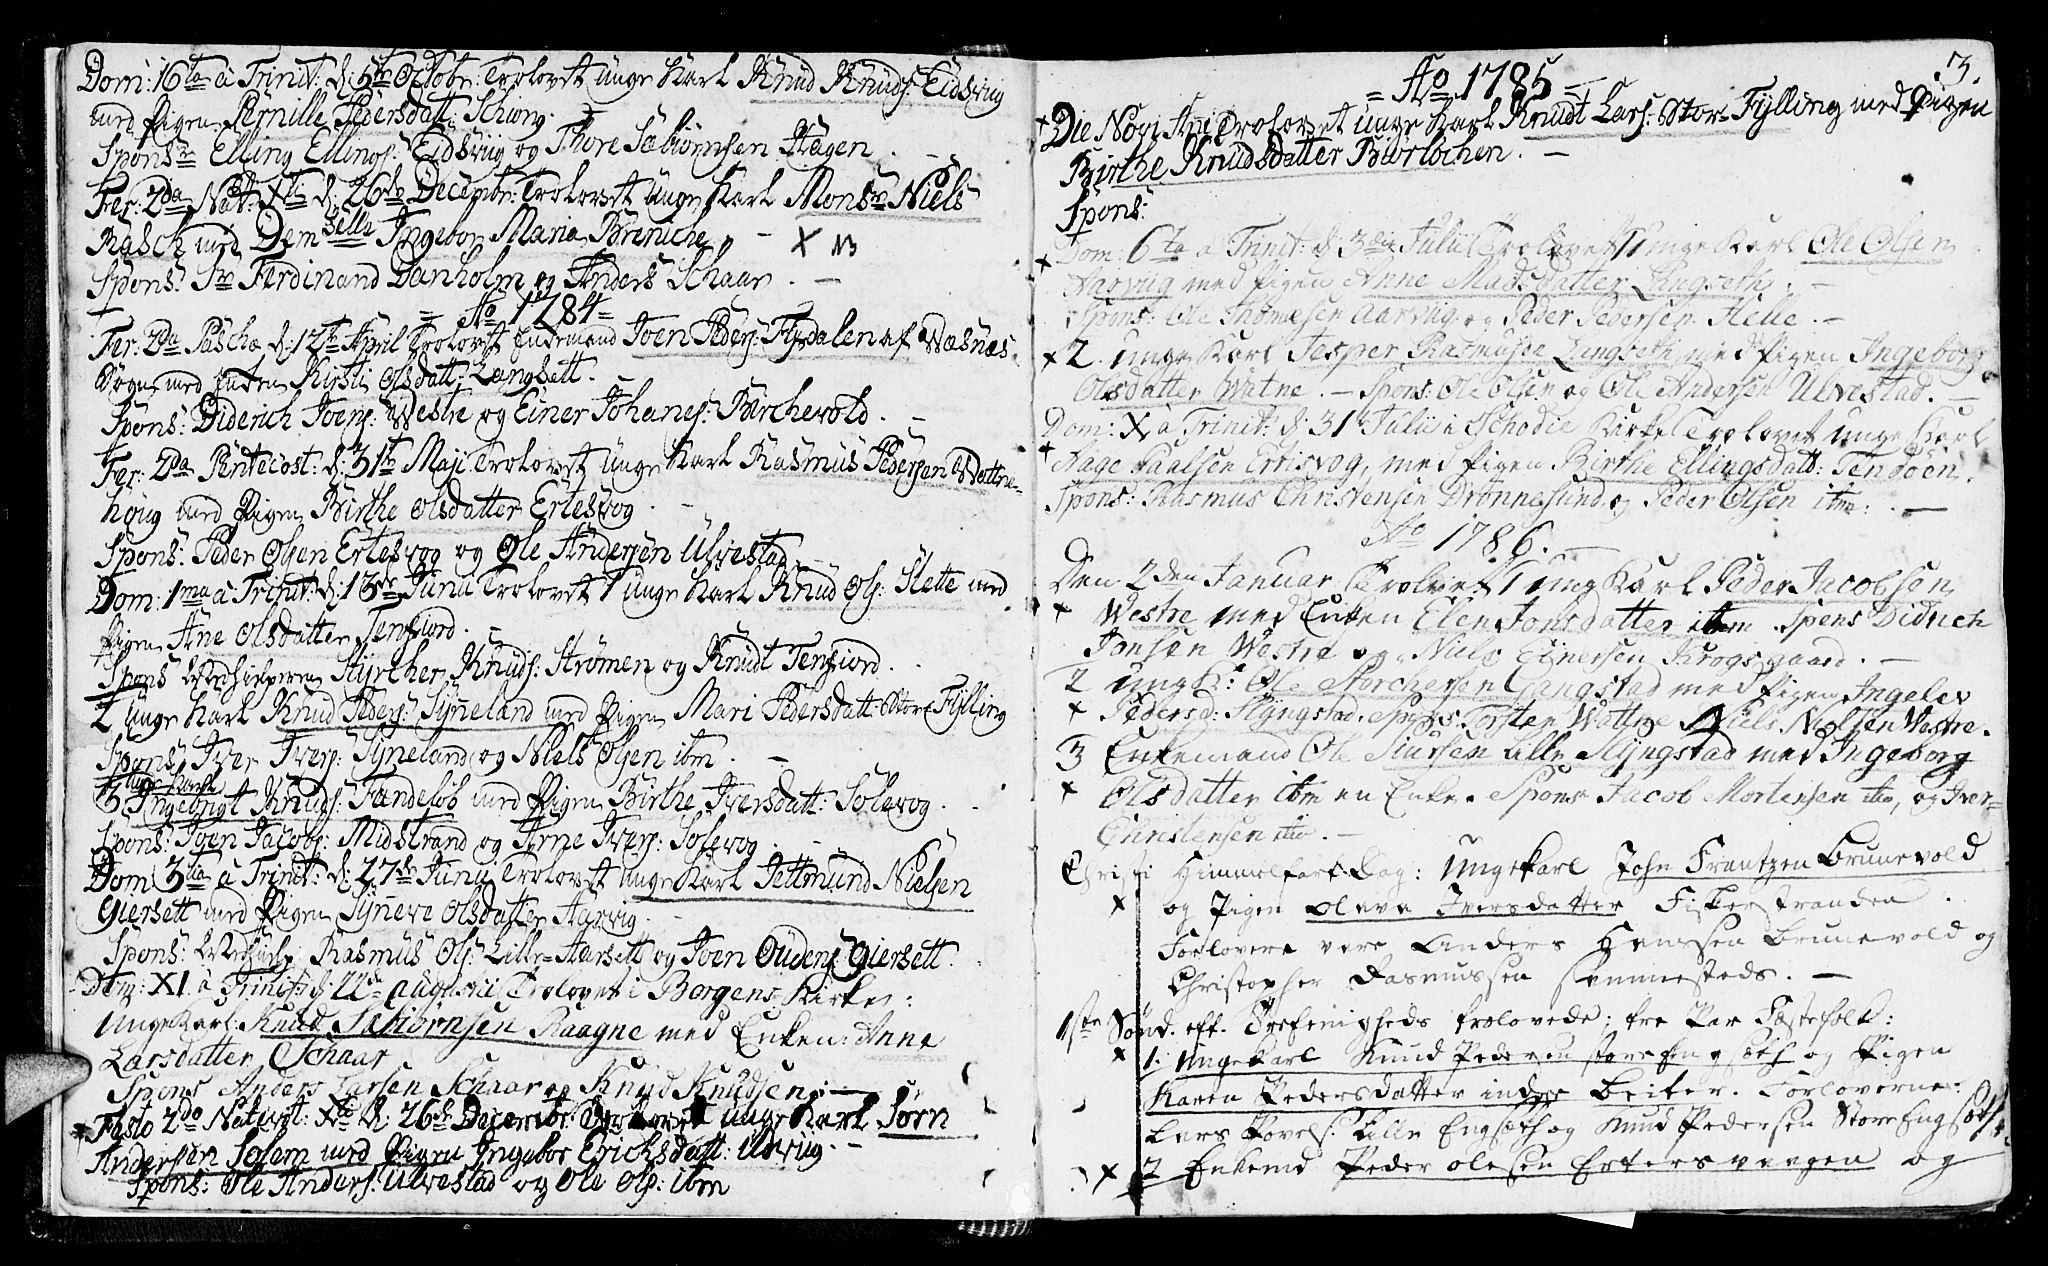 Dom: 16ta à Trinit: d: 5te Octobr: Trolovet unge Karl Knud Knuds: Eidsvug
med Pigen Pernille Pedersdatt:
Spons: Elling Ellings: Eidsvug og Thore Sæbiørnsen Hagen. —
Fer: 2da Nat: Xti d: 26de Decembr: Trolovet unge Karl Monsr Niels
Rasch med Demselle Ingebor Maria Breniche. — X NB
Spons: Sr Ferdinand Danholm og Anders Schaar. —
= Ao 1784 =
Fer: 2da Pascha d: 12te April Trolovet Enkemand Joen Peders: Flydalen af Wæsnæs
Sogn med Enken Kirsti Olsdatt: Langsett.
Spons: Diderich Joens: Westre og Einer Johanes: Birchevold. —
Fer: 2da Pentecost: d: 31te Maji Trolovet unge Karl Rasmus Pedersen Wattne-
høug med Pigen Birthe Olsdatter Ertesvog. —
Spons: Peder Olsen Ertesvog og Ole Andersen Ulvestad. —
Dom: 1ma à Trinit: d: 13de Junii Trolovet 1 unge Karl Knud Ols: Slette med
Pigen Ane Olsdatter Tenfiord. —
Spons: Knuds: Strømen og Knudt Tenfiord.
2 unge Karl Knud Peders: Synneland med Pigen Mari Pedersdatt: Store Fylling
Spons: Iver Ivers: Synneland og Niels Olsen ibm. —
unge Karl
3 Ingebrigt Knuds: Sandesøb med Pigen Birthe Iversdatt: Solevog.
Spons: Joen Jacobs: Midstrand og Arne Ivers: Solevog.
Dom: 3tia à Trinit: d: 27de Junii Trolovet unge Karl Jettmund Nielsen
Giersett med Pigen Synneve Olsdatter Aarvig.
Spons: Rasmus Ols: Lille-Hærsett og Joen Oudens: Giersett.
Dom: XI à Trinit: d: 22de Augusti Trolovet i Borgens Kirke:
Unge Karl: Knud Sæbiørnsen Raagne med Enken Anne
Larsdatter Schaar
Spons: Anders Larsen Schaar og Knud Knudsen: —
Festo 2do Nativit: Xti d: 26de Decembr: Trolovet unge Karl Sørn
Andersen Solem med Pigen Ingebor Ericksdatt: Ulvug. —
Spons: Ole Anders: Ulvestad og Ole Ols: ibm
3.
= Ao 1785 =
Die Novi Ani Trolovet unge Karl Knudt Lars: Stor-Fylling med Pigen
Birthe Knudsdatter Biørlochen. —
Spons:
Dom: 6ta à Trinit: d: 3die Julii Trolovet 1 unge Karl Ole Olsen
Aarvug med Pigen Anne Madsdatter Lingseth. —
Spons: Ole Thomesen Aarvug og Peder Pedersen Helle. —
2. unge Karl Jesper Rasmusen Lingseth med Pigen Ingeborg
Olsdatter Watne. — Spons: Ole Olsen og Ole Andersen Ulvestad. —
Dom: X à Trinit: d: 31te Julii i Schodie Kirke Trolovet unge Karl
Aage Paalsen Ertisvog, med Pigen Birthe Ellingsdatt: Tendøen.
Spons: Rasmus Christensen Drønnesund og Peder Olsen ibm: —
Ao 1786. —
Den 2den Januar Trolovet 1 ung Karl Peder Jacobsen
Westre med Enken Elen Jonsdatter ibm. Spons Didrich
Jonsen Westre og Niels Einersen Krogsgaard. —
2 ung K: Ole Storchersen Langstad med Pigen Ingelev
Pedersd: Slyngstad. Spons: Torsten Wattne Niels Nielsen Westre.
3 Enkemand Ole Siursen Lille Slyngstad med Ingeborg
Olsdatter ibm en Enke. Spons Jacob Mortensen ibm, og Iver
Christensen ibm. —
Christi Himmelfarts Dag: Ungekarl John Frantzen Brunevold
og Pigen Oleva Iversdatter Fiskerstranden.
Forlovere vare Anders Hanssen Brunevold og
Christopher Rasmussen
1ste Sønd. eft. Trefenigheds trolovede; tre Par Fæstefolk:
1. Ungekarl Knud Pedersen store Engsæth og Pigen
Karen Pedersdatter indre Beiter. Forloverne:
Lars Povels. Lille Engsæth og Knud Pedersen Store Engsæth.
2 Enkemd Peder Olesen Ertersvaagen og